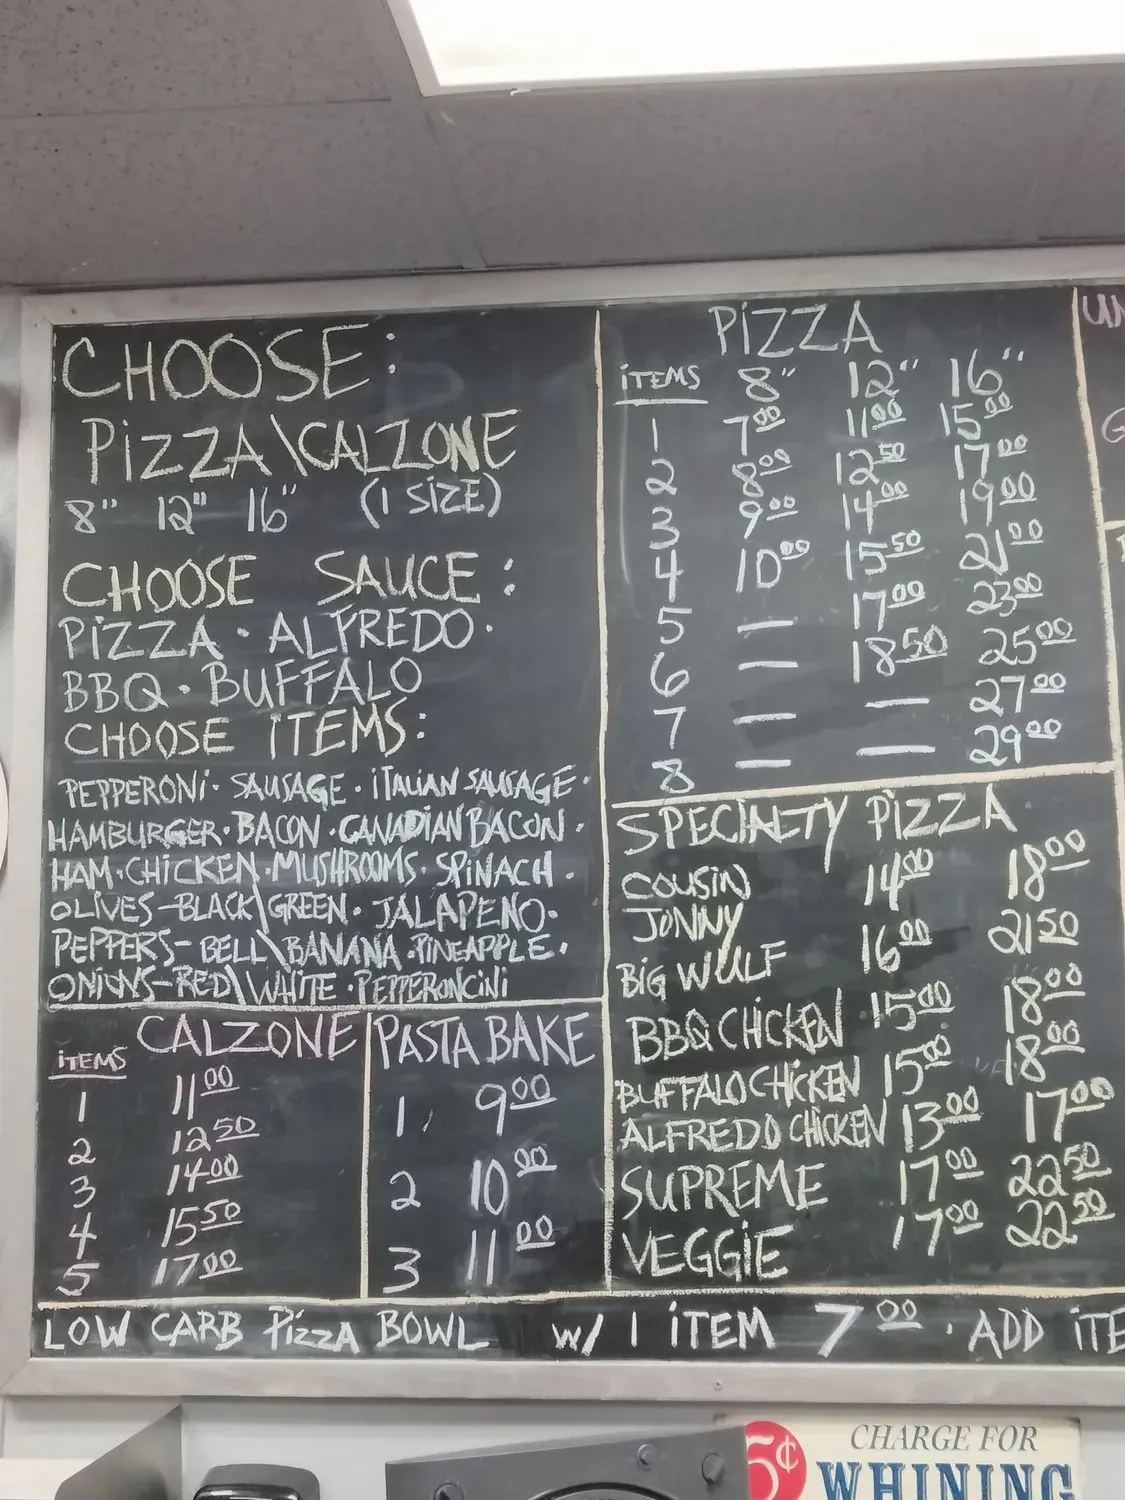 CHOOSE:
PiZZA\CALZONE
8" 12" 16" (1 SiZE)
CHOOSE SAUCE:
PiZZA · ALFREDO ·
BBQ · BUFFALO
CHOOSE iTEMS:
PEPPERONi · SAUSAGE · iTALiAN SAUSAGE ·
HAMBURGER · BACON · CANADiAN BACON ·
HAM · CHiCKEN · MUSHROOMS · SPiNACH ·
OLiVES-BLACK\GREEN · JALAPENO ·
PEPPERS-BELL\BANANA · PiNEAPPLE ·
ONiONS-RED\WHiTE · PEPPERONCiNi
CALZONE
iTEMS
1 11 00
2 12 50
3 14 00
4 15 50
5 17 00
PASTA BAKE
1 9 00
2 10 00
3 11 00
PiZZA
iTEMS 8" 12" 16"
1 7 00 11 00 15 00
2 8 00 12 50 17 00
3 9 00 14 00 19 00
4 10 00 15 50 21 00
5 — 17 00 23 00
6 — 18 50 25 00
7 — — 27 00
8 — — 29 00
SPECIALTY PiZZA
COUSiN 14 00 18 00
JONNY
BiG WULF 16 00 21 50
BBQ CHiCKEN 15 00 18 00
BUFFALO CHiCKEN 15 00 18 00
ALFREDO CHiCKEN 13 00 17 00
SUPREME 17 00 22 50
VEGGiE 17 00 22 50
LOW CARB PiZZA BOWL w/ 1 iTEM 7 00 · ADD iTE
5¢ CHARGE FOR
WHINING